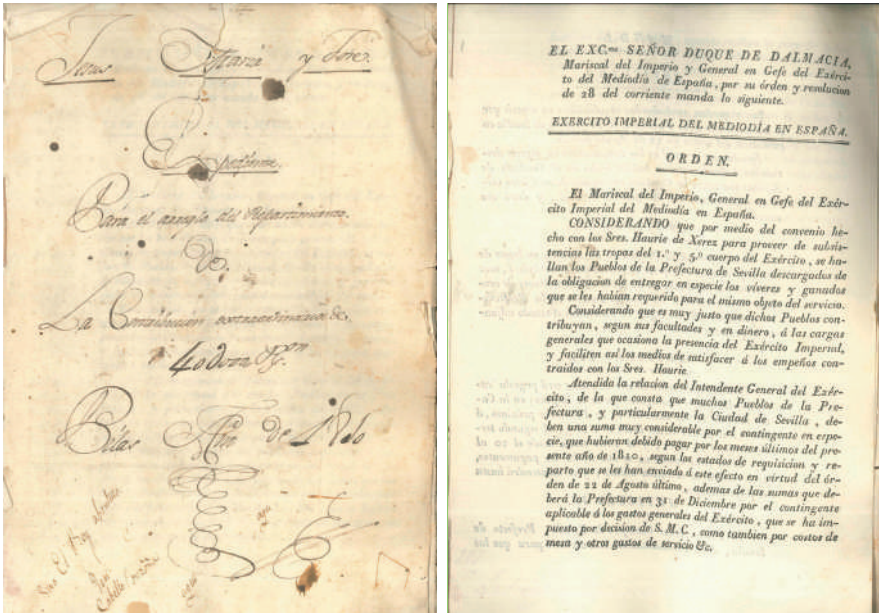 Jesus Maria y Jose.
Expediente.
Para el arreglo del Repartimiento.
De,
La Contribucion extraordinaria de
Pilas Año de 1810
Sor El Rey absoluto
EL EXC.mo SEÑOR DUQUE DE DALMACIA,
Mariscal del Imperio y General en Gefe del Exérci-
to del Mediodía de España, por su órden y resolucion
de 28 del corriente manda lo siguiente.
EXERCITO IMPERIAL DEL MEDIODÍA EN ESPAÑA.
ORDEN.
El Mariscal del Imperio, General en Gefe del Exér-
cito Imperial del Mediodía en España.
CONSIDERANDO que por medio del convenio he-
cho con los Sres. Haurie de Xerez para proveer de subsis-
tencias las tropas del 1.º y 5.º cuerpo del Exército, se ha-
llan los Pueblos de la Prefectura de Sevilla descargados de
la obligacion de entregar en especie los víveres y ganados
que se les habian requerido para el mismo objeto del servicio.
Considerando que es muy justo que dichos Pueblos con-
tribuyan, segun sus facultades y en dinero, á las cargas
generales que ocasiona la presencia del Exército Imperial,
y faciliten así los medios de satisfacer á los empeños con-
traidos con los Sres. Haurie.
Atendida la relacion del Intendente General del Exér-
cito, de la que consta que muchos Pueblos de la Pre-
fectura, y particularmente la Ciudad de Sevilla, de-
ben una suma muy considerable por el contingente en espe-
cie, que hubieran debido pagar por los meses últimos del pre-
sente año de 1810, segun los estados de requisicion y re-
parto que se les han enviado á este efecto en virtud del ór-
den de 22 de Agosto último, ademas de las sumas que de-
berá la Prefectura en 31 de Diciembre por el contingente
aplicable á los gastos generales del Exército, que se ha im-
puesto por decision de S. M. C., como tambien por costos de
mesa y otros gastos de servicio &c.